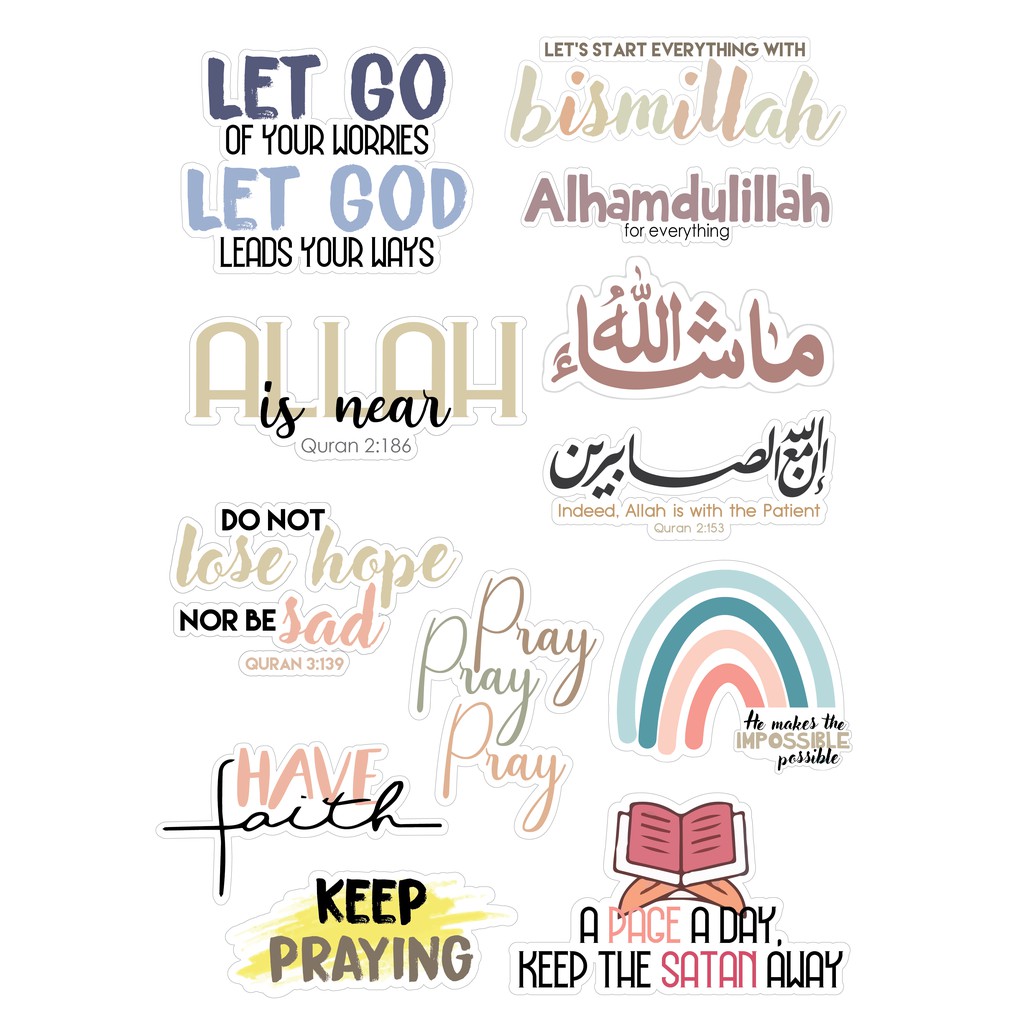 LET GO
OF YOUR WORRIES
LET GOD
LEADS YOUR WAYS
LET'S START EVERYTHING WITH
bismillah
Alhamdulillah
for everything
ALLAH
is near
Quran 2:186
ما شاء الله
إن مع الله الصابرين
Indeed, Allah is with the Patient
Quran 2:153
DO NOT
lose hope
NOR BE sad
QURAN 3:139
Pray
Pray
Pray
He makes the
IMPOSSIBLE
possible
HAVE
faith
KEEP
PRAYING
A PAGE A DAY,
KEEP THE SATAN AWAY